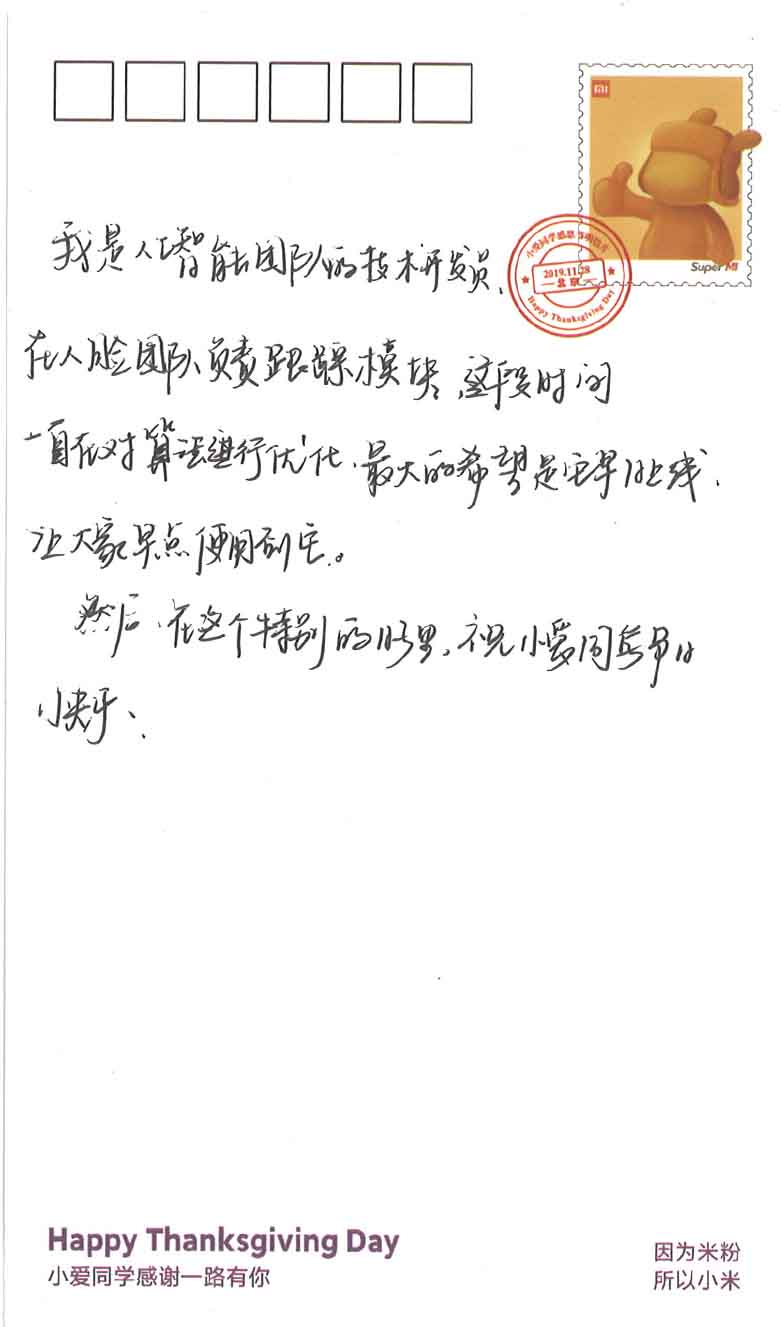 小爱同学感恩节明信片
2019.11.28
北京
Happy Thanksgiving Day
Super MI
我是人工智能团队的技术开发员,
在人脸团队负责跟踪模块,这段时间
一直在对算法进行优化,最大的希望是它早日上线,
让大家早点使用到它。
然后,在这个特别的日子里,祝小爱同学节日
快乐、
Happy Thanksgiving Day
小爱同学感谢一路有你
因为米粉
所以小米